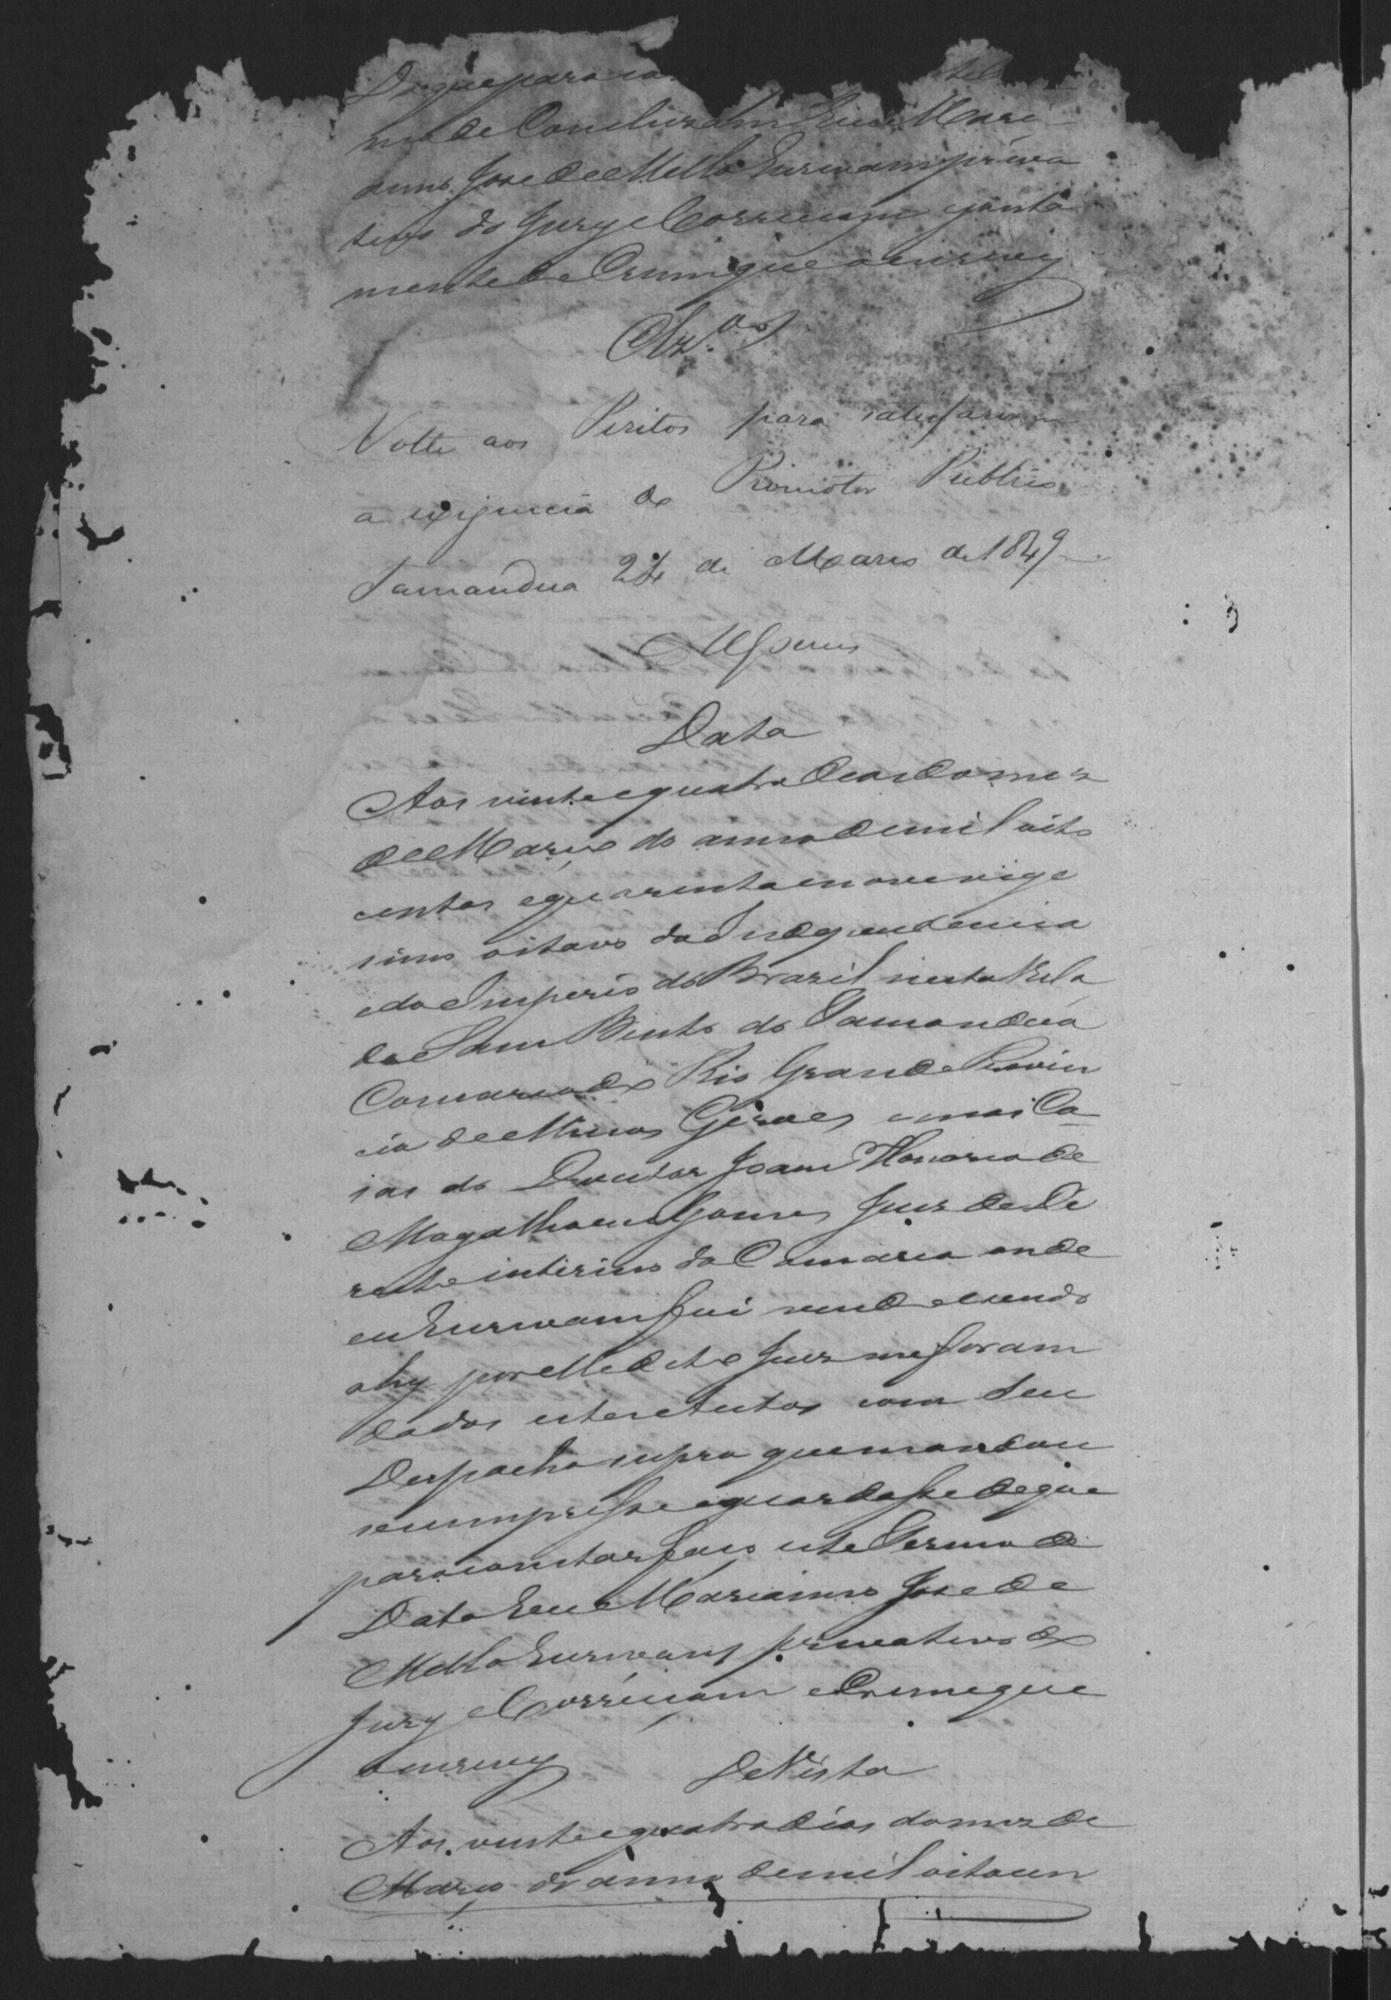 De que para co
mo de Concluzam Eu Mari
anno Jose de Mello Escrivam priva
tivo do Jury e Correicam e junta
mente de Crime que a escrevy
Clz.os
Volte aos Peritos para satisfazerem
a exigencia do Promotor Publico
Tamandua 24 de Março de 1849
Data
Aos vinte e quatro dias do mez
de Março do anno de mil oito
centos e quarenta e nove vige
simo oitavo da Independencia
e do Imperio do Brazil nesta Villa
de Sam Bento do Tamanduá
Comarca do Rio Grande Provin
cia de Minas Geraes em as Ca
sas do Doutor Joam Honorio de
Magalhaens Gomes Juis de Di
reito interino da Comarca onde
eu Escrivam fui vindo e sendo
ahy por elle dito Juis me foram
dados estes Autos com seu
Despacho supra que mandou
se cumprisse e guardasse de que
para constar faço este Termo de
Data Eu Marianno Jose de
Mello Escrivam privativo do
Jury e Correiçam e Crime que
a escrevy
De Vista
Aos vinte e quatro dias do mez de
Março do anno de mil oitocen